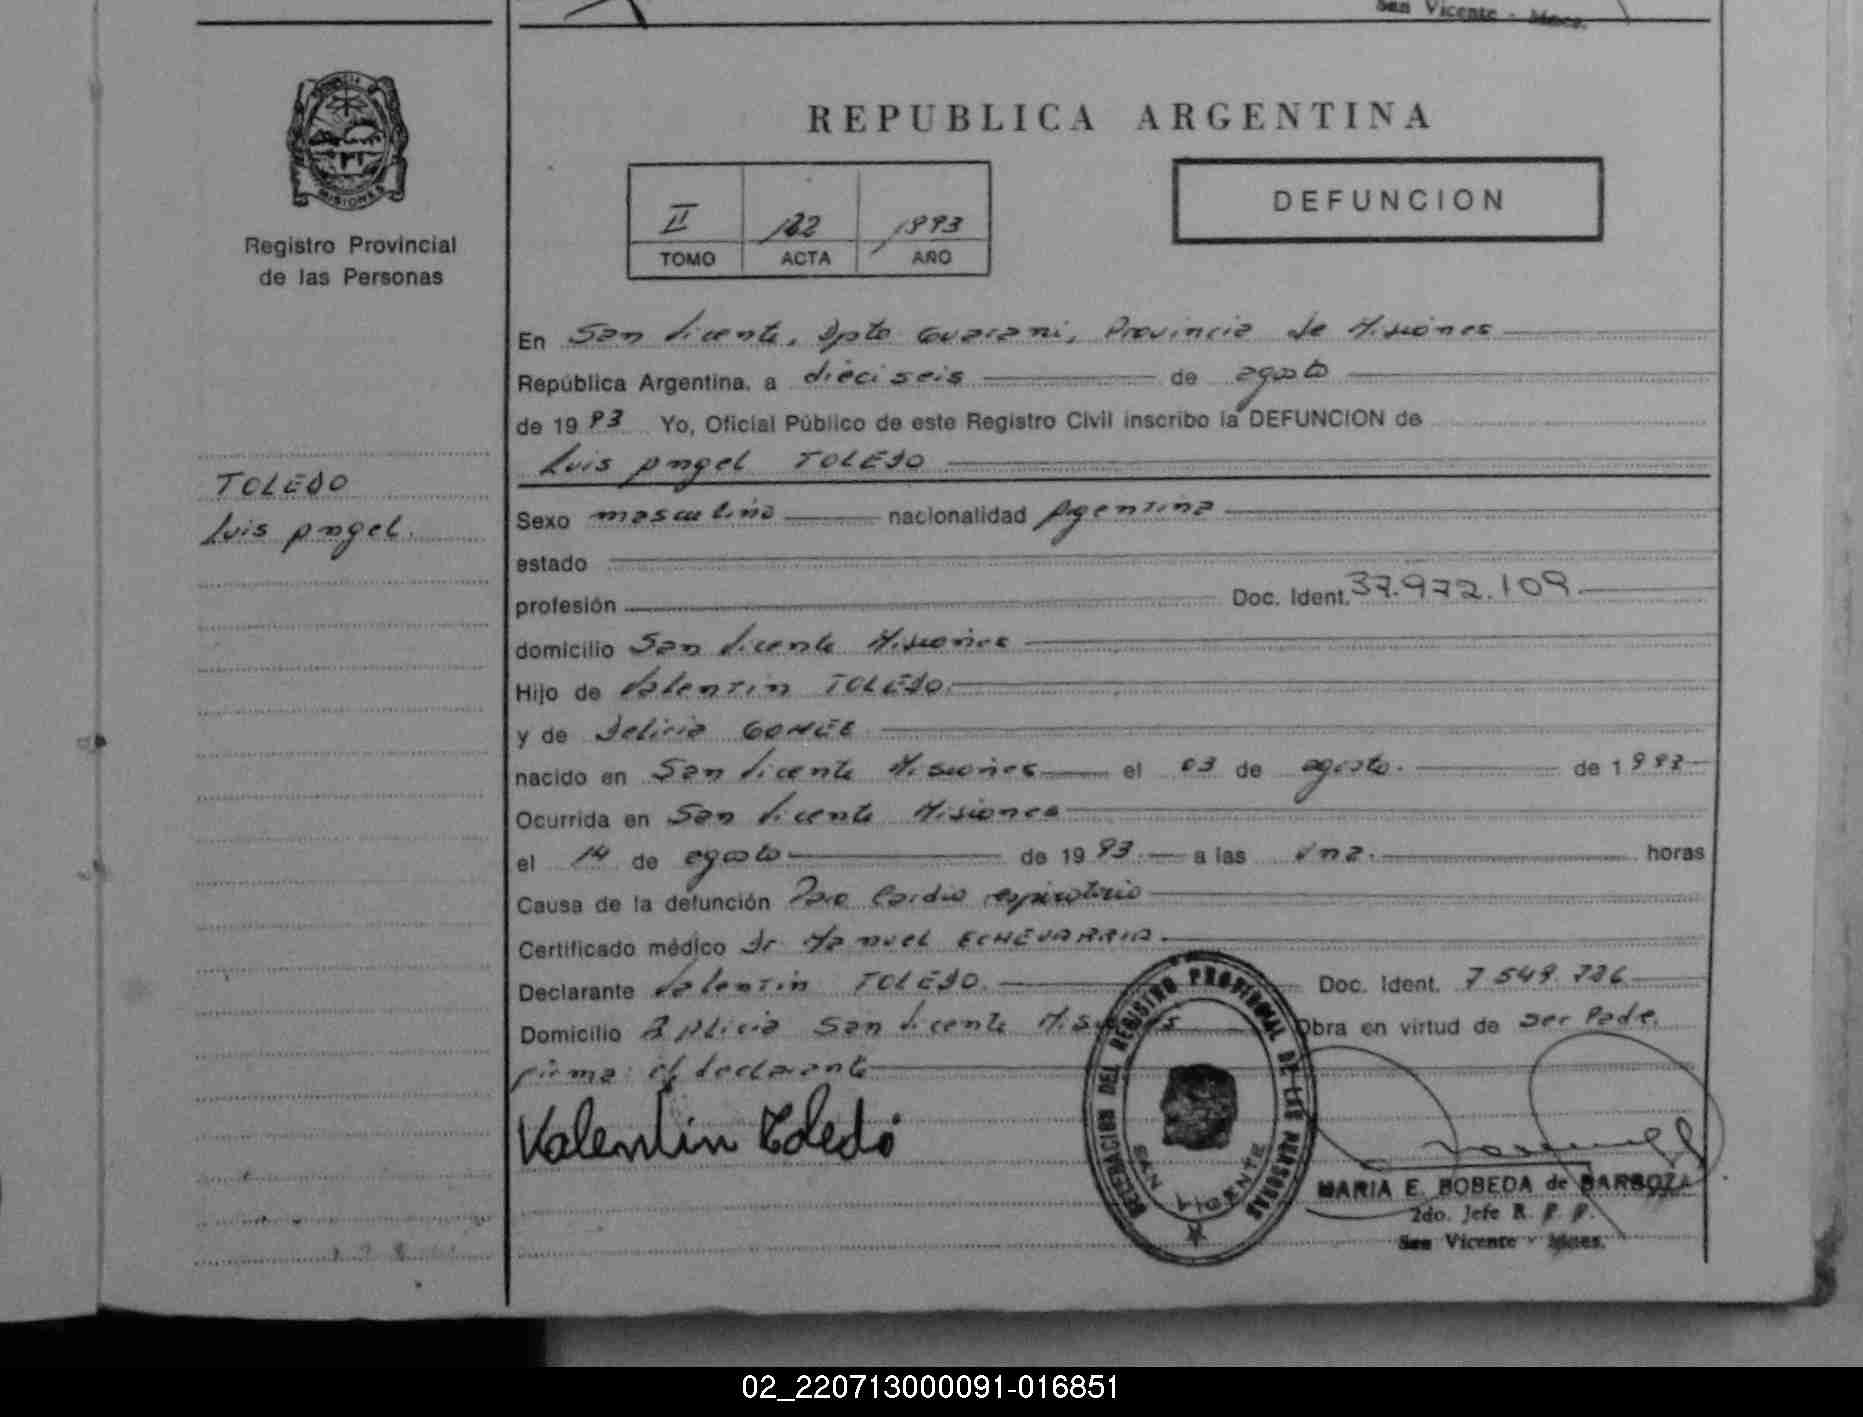 San Vicente - Mnes.
PROVINCIA DE
MISIONES
Registro Provincial
de las Personas
TOLEDO
Luis Angel.
REPUBLICA ARGENTINA
II 122 1993
TOMO ACTA AÑO
DEFUNCION
En San Vicente, Dpto Guarani, Provincia de Misiones
República Argentina, a dieciseis de agosto
de 1993 Yo, Oficial Público de este Registro Civil inscribo la DEFUNCION de
Luis Angel TOLEDO
Sexo masculino nacionalidad Agentina
estado
profesión Doc. Ident. 37.972.109
domicilio San Vicente Misiones
Hijo de Valentin TOLEDO
y de Delicia GOMEZ
nacido en San Vicente Misiones el 03 de agosto. de 1993
Ocurrida en San Vicente Misiones
el 14 de agosto de 1993 a las una. horas
Causa de la defunción Paro Cardio respiratorio
Certificado médico Dr Manuel ECHEVARRIA.
Declarante Valentin TOLEDO. Doc. Ident. 7 549.726
Domicilio San Vicente Misiones Obra en virtud de ser Padre.
firma: el declarante
Valentin Toledo
DELEGACION DEL REGISTRO PROVINCIAL DE LAS PERSONAS
SAN VICENTE
MARIA E. BOBEDA de BARBOZA
2do. Jefe R. P. P.
San Vicente - Mnes.
02_220713000091-016851